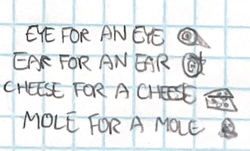 EYE FOR AN EYE
EAR FOR AN EAR
CHEESE FOR A CHEESE
MOLE FOR A MOLE